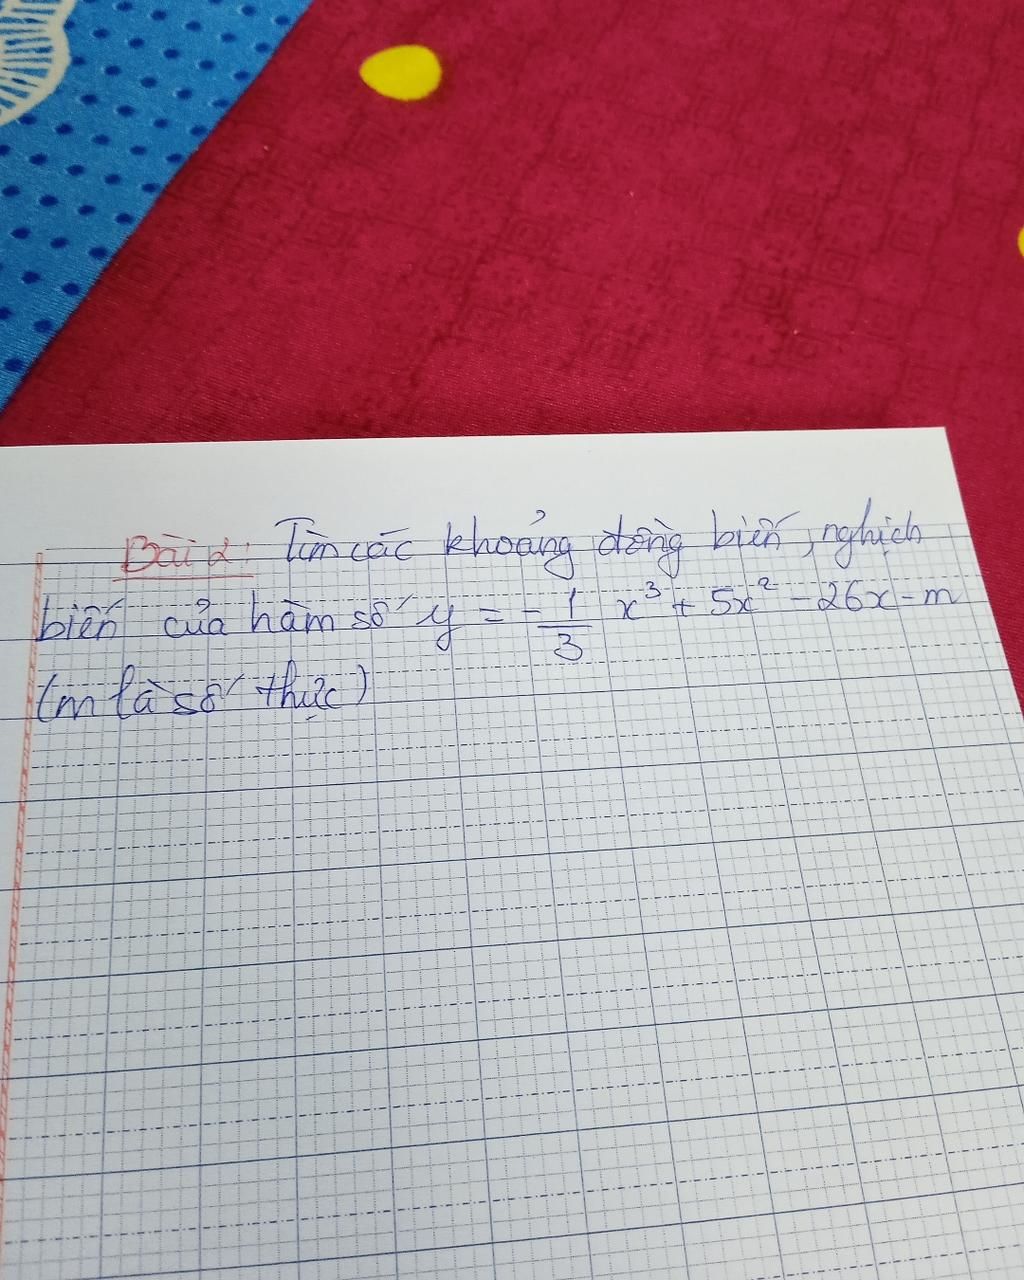 Bài 2: Tìm các khoảng đồng biến, nghịch
biến của hàm số y = -1/3 x³ + 5x² - 26x - m
(m là số thực)